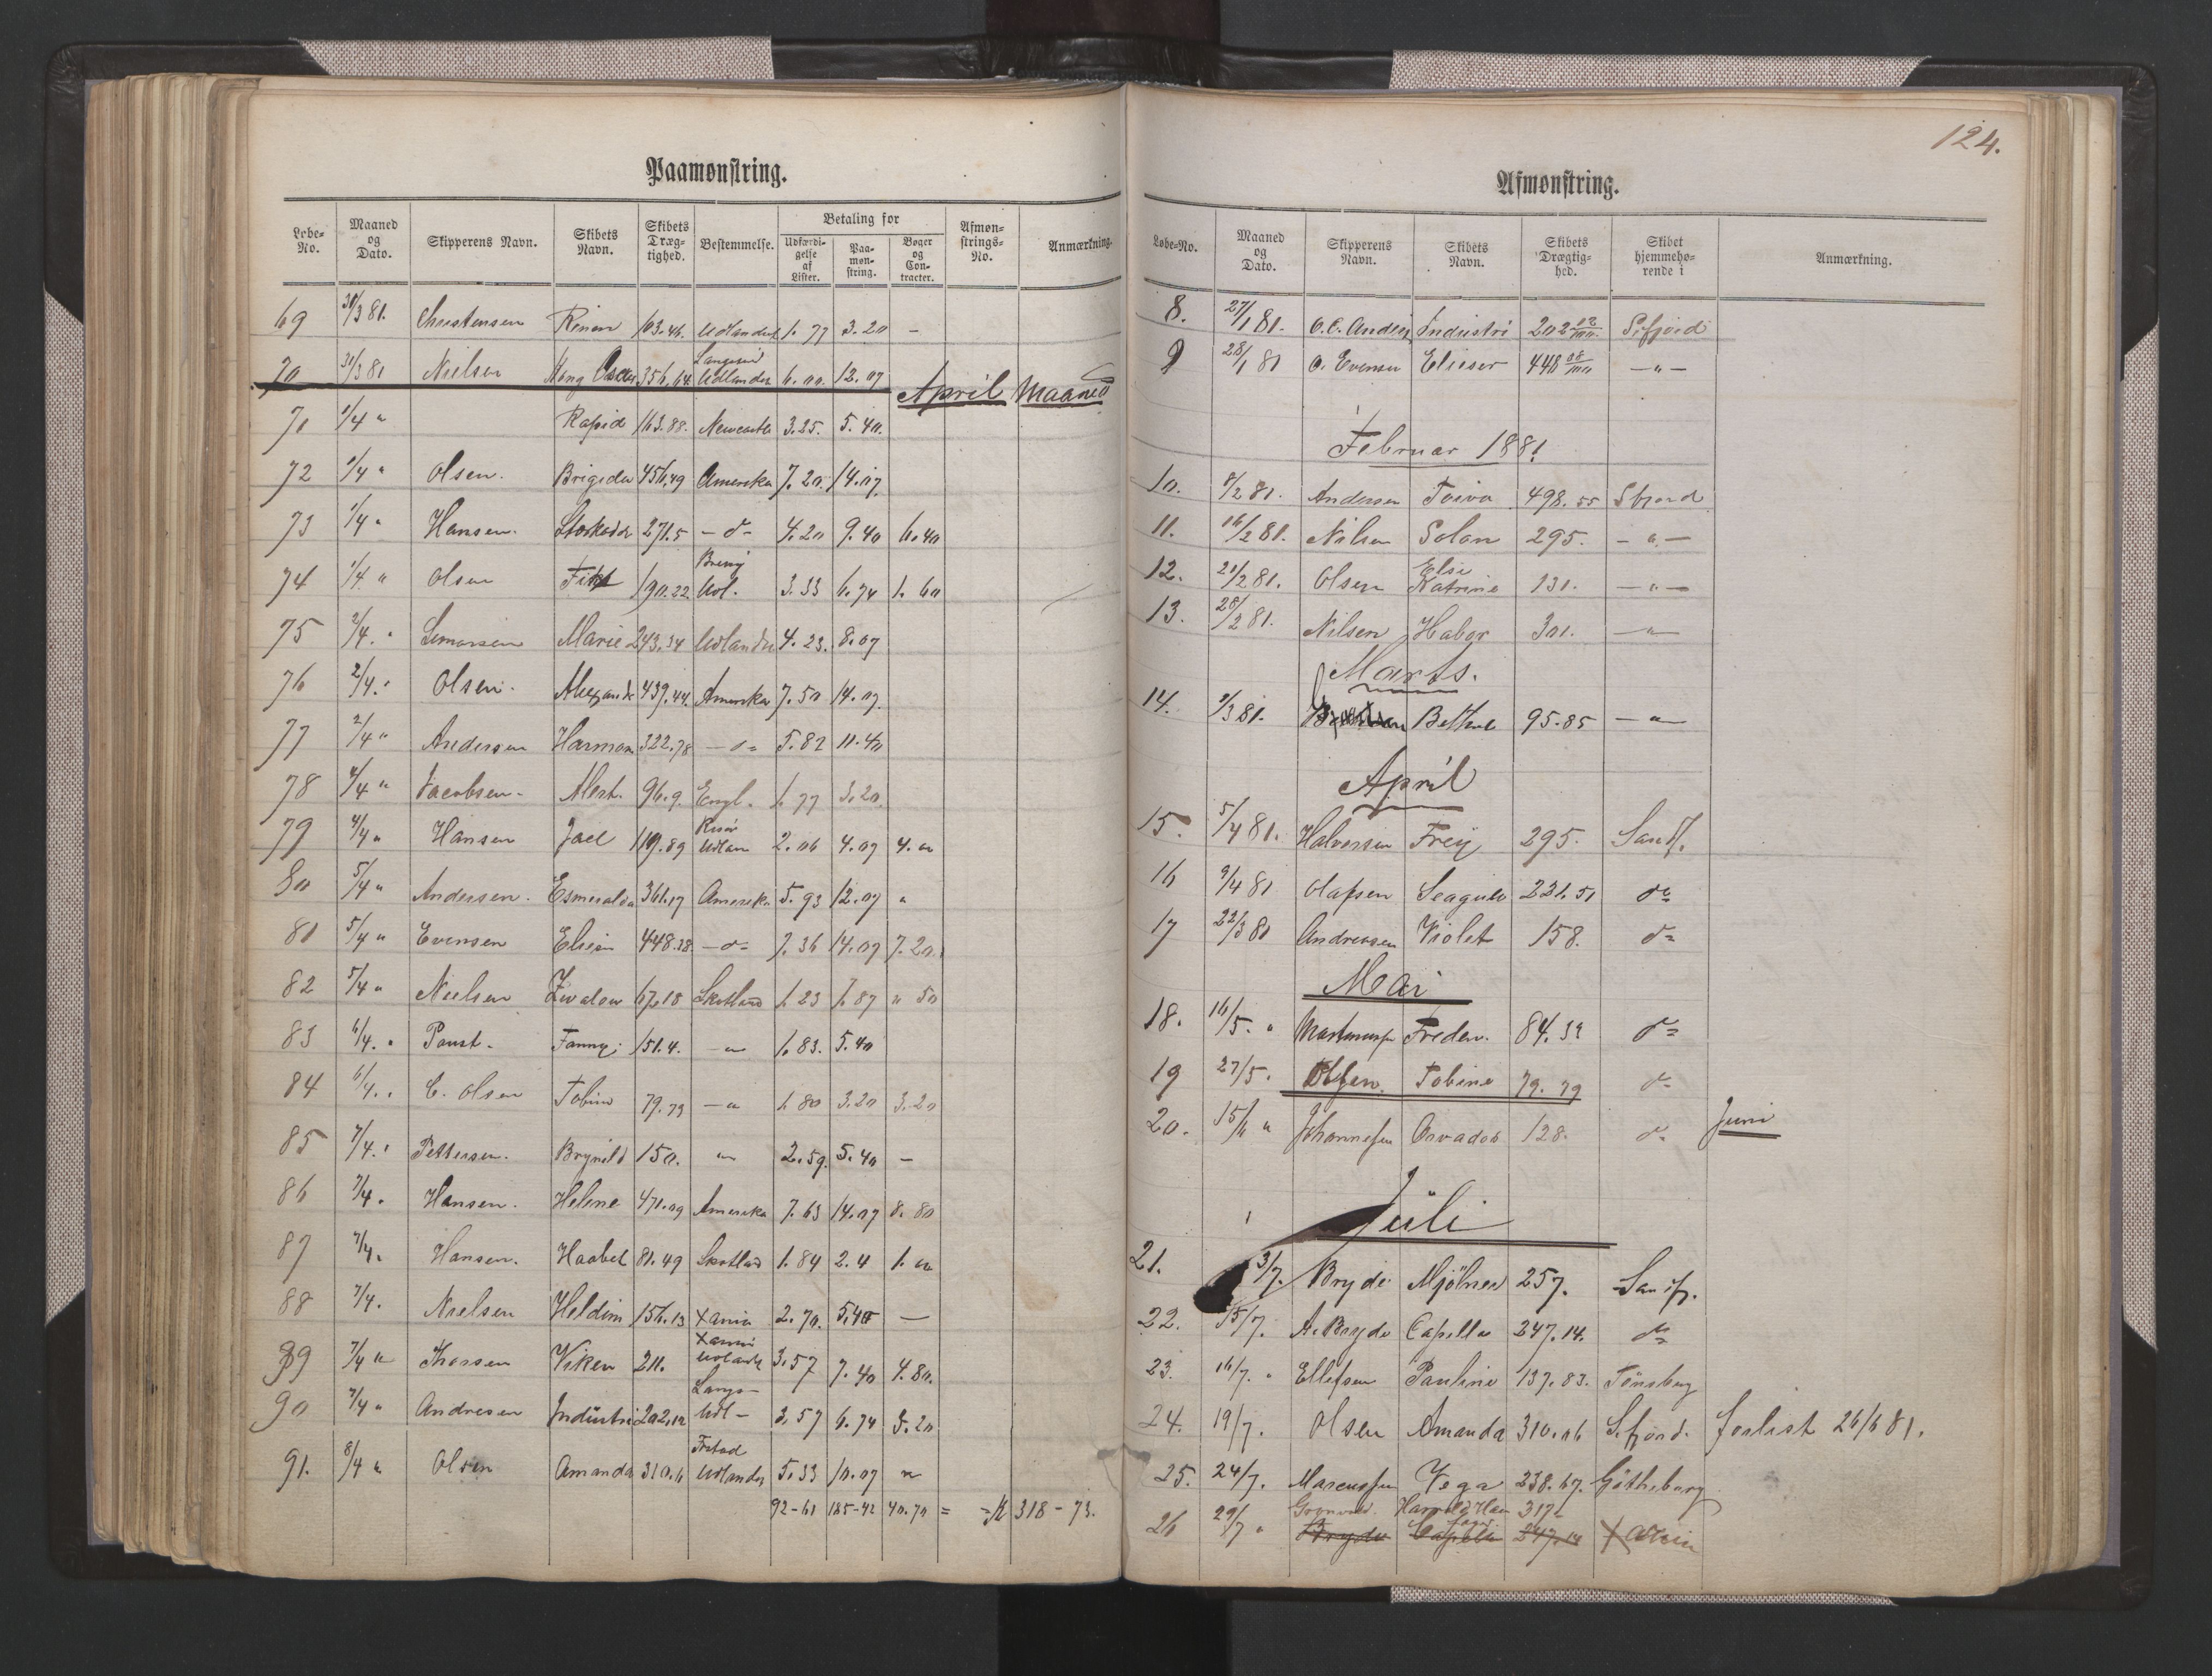 Paamønstring.
Løbe-No. Maaned og Dato. Skipperens Navn. Skibets Navn. Skibets Dræg-tighed. Bestemmelse. Betaling for Udfærdi-gelse af Lister. Paa-møn-string. Bøger og Con-tracter. Afmøn-strings-No. Anmærkning.
69 31/3 81. Christensen 103.46. Udlandet 1.77 3.20 –
70 31/3 81 Nielsen Kong Oscar 356,64 Langesund Udlandet 6.00. 12.07
April Maaned
71 1/4 " Rapid 163.88. Newcastle 3.25. 5.40.
72 1/4 " Olsen. Brigeda 456,49 Amerika 7.20. 14.07.
73 1/4 " Hansen. 271.5 – d– 4.20 9.40 6.40
74 1/4 " Olsen 190.22 Udl. 3.33 6.74 1.60
75 2/4. " Marie 243.34 Udlandet 4.23. 8.07
76 2/4. " Olsen. 439.44. Amerika 7.50 14.07.
77 2/4 " Andersen Harmoni 322.78 – d= 5.82 11.40
78 4/4 " Jacobsen. Alert. 96.9. Engl. 1.77 3.20.
79 4/4 " Hansen Jael 119.89 Risør Udlan 2.06 4.07 4.00
80 5/4 " Andersen. Esmeralda 361.17 Amerika 5.93 12.07 "
81 5/4 " Evensen 448.38. – d= 7.36 14.07 7.20.
82 5/4 " Nielsen 67.18 Skotland 1.23 1.87 " 50
83 6/4. " Paust. Fanny. 151.4. – " 1.83. 5.40
84 6/4. " C. Olsen Tobine 79.79 – " 1.80 3.20 3.20
85 7/4. " Pettersen. Brynild 150. – " 2.59. 5.40 –
86 7/4. Hansen. Helene 471.09 Amerika 7.63 14.07 8.80
87 7/4. Hansen. Haabet 81.49 Skotland 1.84 2.4 1.00
88 7/4. Nielsen 156.13 Xania 2.70. 5.40 –
89 7/4 " Viken 211. Xania Udlandet 3.57 7.40 4.80.
90 7/4 " Andresen Industri 202,12 Langs– Udl– 3,57 6.74 3.20
91. 8/4 " Olsen Amanda 310.6 Udlandet 5.33 10.07 "
92-61 185-42 40.70 = =K 318 – 73.
124.
Afmønstring.
Løbe-No. Maaned og Dato. Skipperens Navn. Skibets Navn. Skibets Drægtig-hed. Skibet hjemmehø-rende i Anmærkning.
8. 27/1 81. Industri 202 12/100 S.fjord
9 28/1 81 O. Evensen Elieser 448 38/100 – " –
Februar 1881
10. 8/2 81. Andersen Toivo 498.55 S.fjord
11. 16/2 81. Nilsen Solon 295. – " –
12. 21/2 81. Olsen Elise Katrine 131. – " –
13. 28/2 81. Nilsen Habor 301. – " –
Marts.
14. 3/3 81. 95.85 – " –
April
15. 5/4 81. Halvorsen Freij 295. Sandf.
16 9/4 81 Olafsen Seagull 221.51 do
17 22/3 81 Andresen Violet 158. d=
Mai
18. 16/5. " Freden. 84.32 d=
19 27/5. Olsen. Tobine 79.79 d=
20. 15/6 " Johannesen 128. d= Juni
Juli
21. 3/7. Bryde Mjölner 257. Sandfj.
22. 15/7. A. Bryde Capella 247.14. do
23. 16/7. " Ellefsen Pauline 137.83. Tönsberg
24. 19/7. Olsen Amanda 310.06 S.fjord. forlist 26/6 81.
25. 24/7. Marcussen Vega 238.67. Götheborg
26 29/7 " Grønvold. Harald Haarfager 317.
Bryde Capella 247.14 Xania